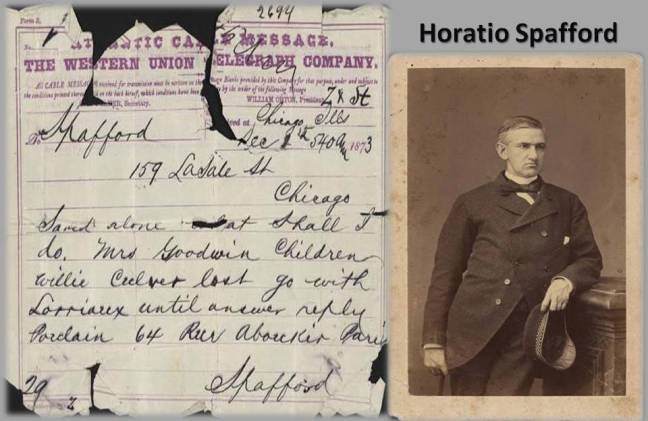 2694
Form 2.
No.
ATLANTIC CABLE MESSAGE.
THE WESTERN UNION TELEGRAPH COMPANY.
ALL CABLE MESSAGES received for transmission must be written on the Message Blanks provided by this Company for that purpose, under and subject to
the conditions printed thereon and on the back hereof, which conditions have been agreed to by the sender of the following Message
Secretary. WILLIAM ORTON, President.
Received at Chicago Ills
Dec 1873
To Spafford
159 LaSale St
Chicago
Saved alone what shall I
do. Mrs Goodwin Children
Willie Culver lost go with
Lorriaux until answer reply
Porclain 64 Rue Aboukir Paris
Spafford
29
Horatio Spafford